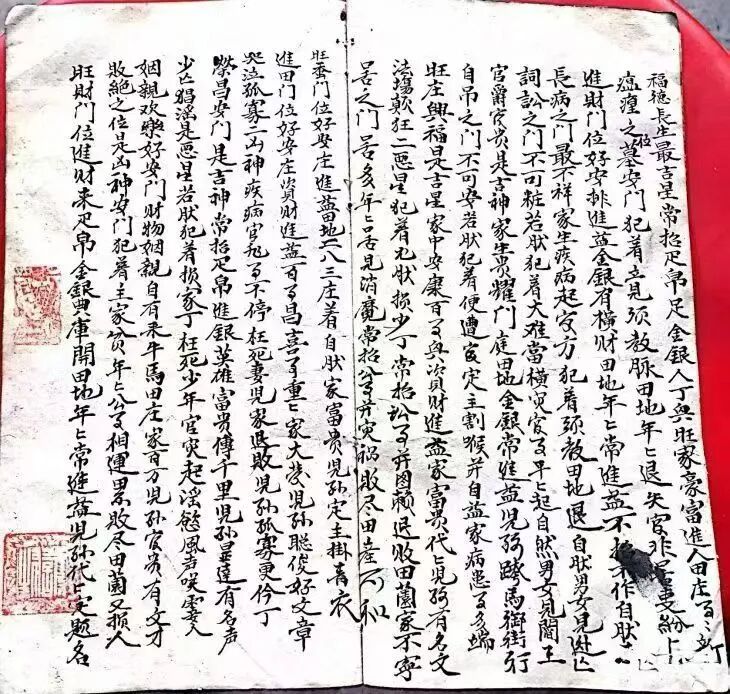 福德長生最吉星常招疋帛足金銀人丁興旺家豪富進人田庄百
瘟瘟之位墓安門犯着立見須教脉田地年〻退失官非紛〻
進財門位好安排進益金銀有横財田地年〻常進益不招不作自肰
長病之門最不祥家生疾病起官方犯着須教田地退自肰男女見迯亡
詞訟之門不可粧若肰犯着大难當橫官事年〻起自然男女見閻王
官爵官貴是吉神家生贵耀門庭田地金銀常進益児孫跨馬御街行
自吊之門不可安若肰犯着便遭官定主割猴并自益家病患多端
旺庄興福是吉星家中安康百事興資財進益家富贵代〻児孫有名文
法塲顛狂二惡星犯着肰損少丁常招訟事并图賴退敗田園家不寧
苦之門苦多年〻苦見消魔常招公事并灾禍敗尽田産不和
旺蚕門位好安庄進益田地二八三庄着自肰家富贵児孫定主掛青衣
進田門位好安庄資财進益百事昌喜事重〻家大發児孫聪俊好文章
哭泣孤寡二凶神疾病官非事不停枉死妻児家退敗児孫孤寡更伶丁
榮昌安門是吉神常招疋帛進銀英雄富贵傳千里児孫显達有名声
少亡猖淫是惡星若肰犯着損家丁枉死少年官灾起淫慾風声人
姻親欢樂好安門财物姻親自有来牛馬田庄家百方児孫官贵有文才
敗絶之位是凶神安門犯着主家贫年〻公事相連累敗尽田園又損人
旺財門位進财来疋帛金銀典庫開田地年〻常進益児孫代〻定題名